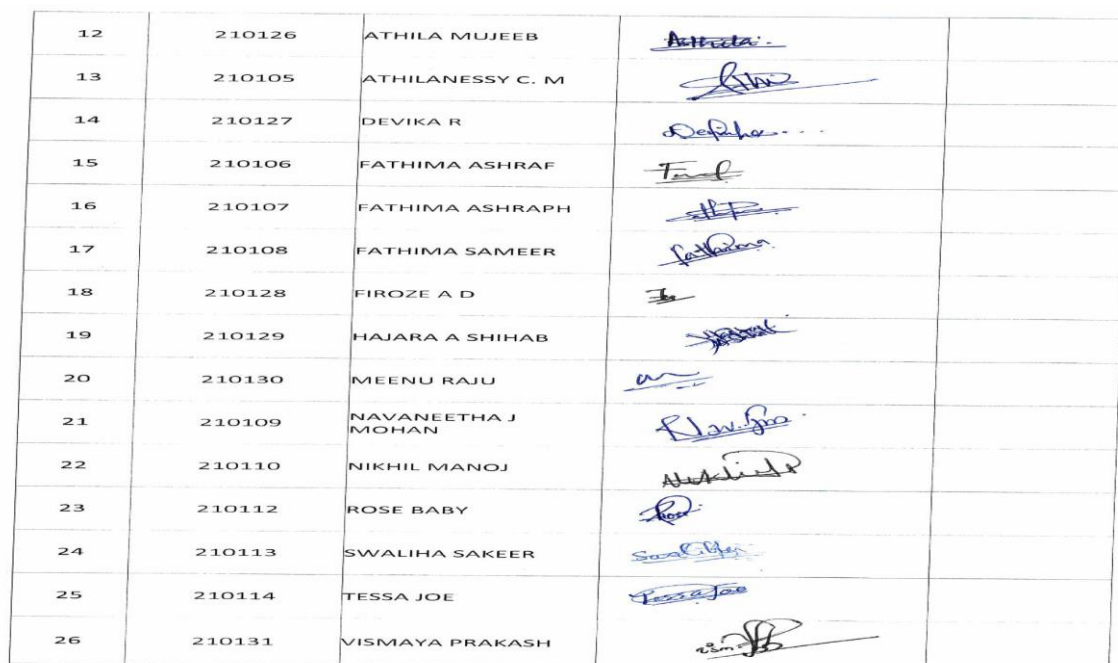 12 210126 ATHILA MUJEEB Athila.
13 210105 ATHILANESSY C. M
14 210127 DEVIKA R
15 210106 FATHIMA ASHRAF
16 210107 FATHIMA ASHRAPH
17 210108 FATHIMA SAMEER Fathima
18 210128 FIROZE A D
19 210129 HAJARA A SHIHAB
20 210130 MEENU RAJU
21 210109 NAVANEETHA J
MOHAN
22 210110 NIKHIL MANOJ
23 210112 ROSE BABY
24 210113 SWALIHA SAKEER
25 210114 TESSA JOE Tessa Joe
26 210131 VISMAYA PRAKASH